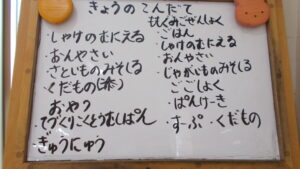 きょうのこんだて
・しゃけのむにえる
・おんやさい
・さといものみそしる
・くだもの
おやつ
・てづくりこくとうむしぱん
・ぎゅうにゅう
もぐもぐ
・ごはん
・しゃけのむにえる
・おんやさい
・じゃがいものみそしる
ごごしょく
・ぱんけーき
・すーぷ・くだもの